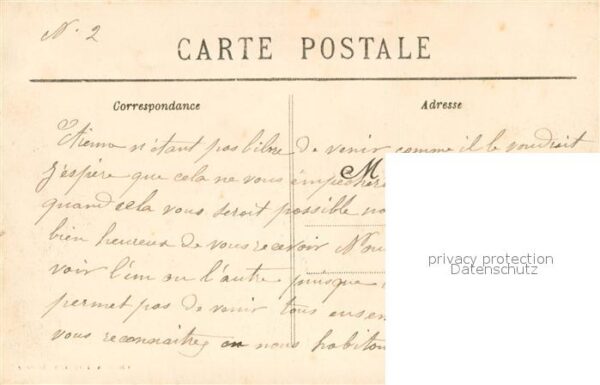 N. 2
CARTE POSTALE
Correspondance
Adresse
Etienne n'étant pas libre de venir comme il le voudrait
j'espère que cela ne vous empêchera
M
quand cela vous serait possible no
bien heureux de vous recevoir Nou
voir l'un ou l'autre puisque
permet pas de venir tous ensem
vous reconnaitrez où nous habiton
privacy protection
Datenschutz